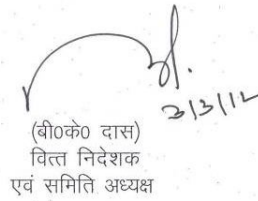 3/3/12
(बी०के० दास)
वित्त निदेशक
एवं समिति अध्यक्ष